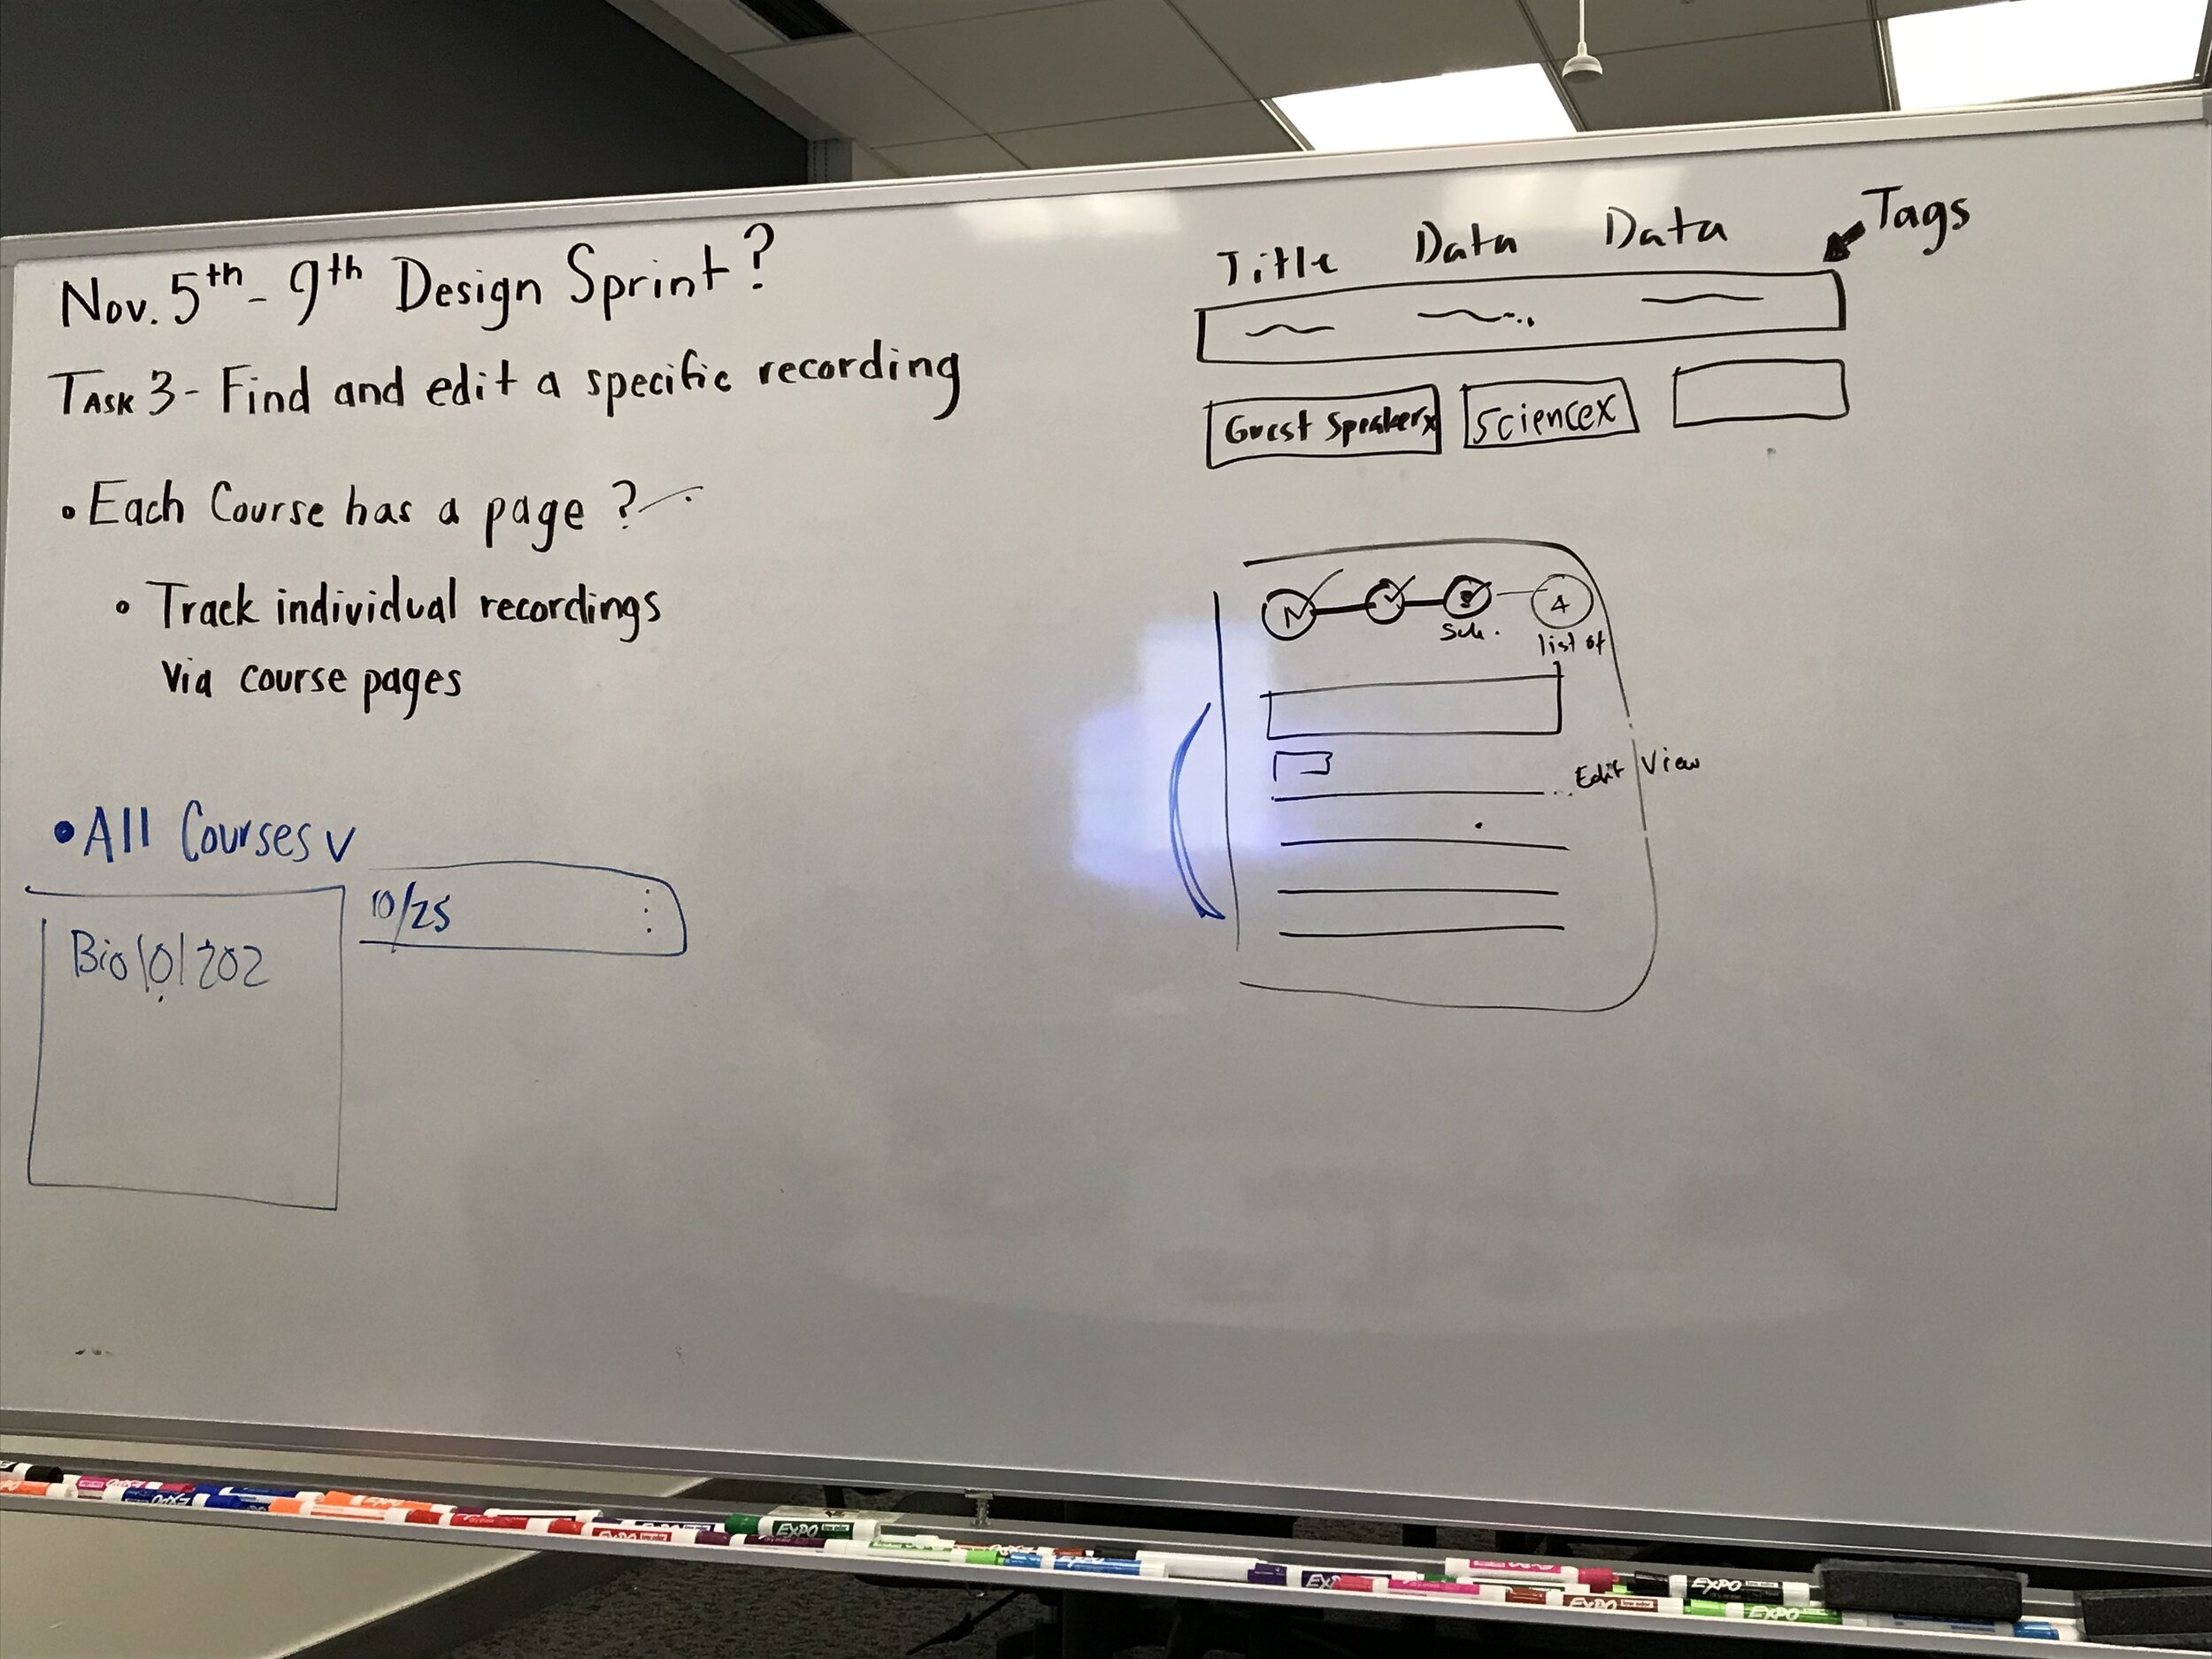 Nov. 5th - 9th Design Sprint?
Task 3 - Find and edit a specific recording
• Each Course has a page ?
• Track individual recordings
Via course pages
• All Courses v
10/25
Bio 101 202
Title Data Data Tags
Guest Speaker x Science x
4
Sch.
list of
Edit View
EXPO
EXPO
EXPO
EXPO
EXPO
EXPO
EXPO